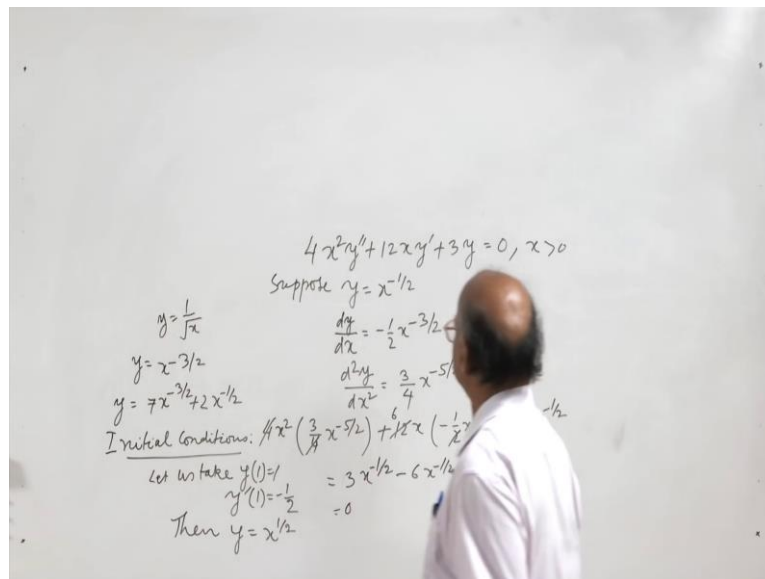 4x²y″+12xy′+3y=0, x>0
Suppose y=x^{-1/2}
dy/dx = -1/2 x^{-3/2}
d²y/dx² = 3/4 x^{-5/
4x² (3/4 x^{-5/2}) + 12x (-1/2 x ^{-1/2}
= 3x^{-1/2} - 6x^{-1/2}
=0
y=1/√x
y=x-3/2
y=7x^{-3/2}+2x^{-1/2}
Initial Conditions:
Let us take y(1)=1
y′(1)=-1/2
Then y=x^{1/2}